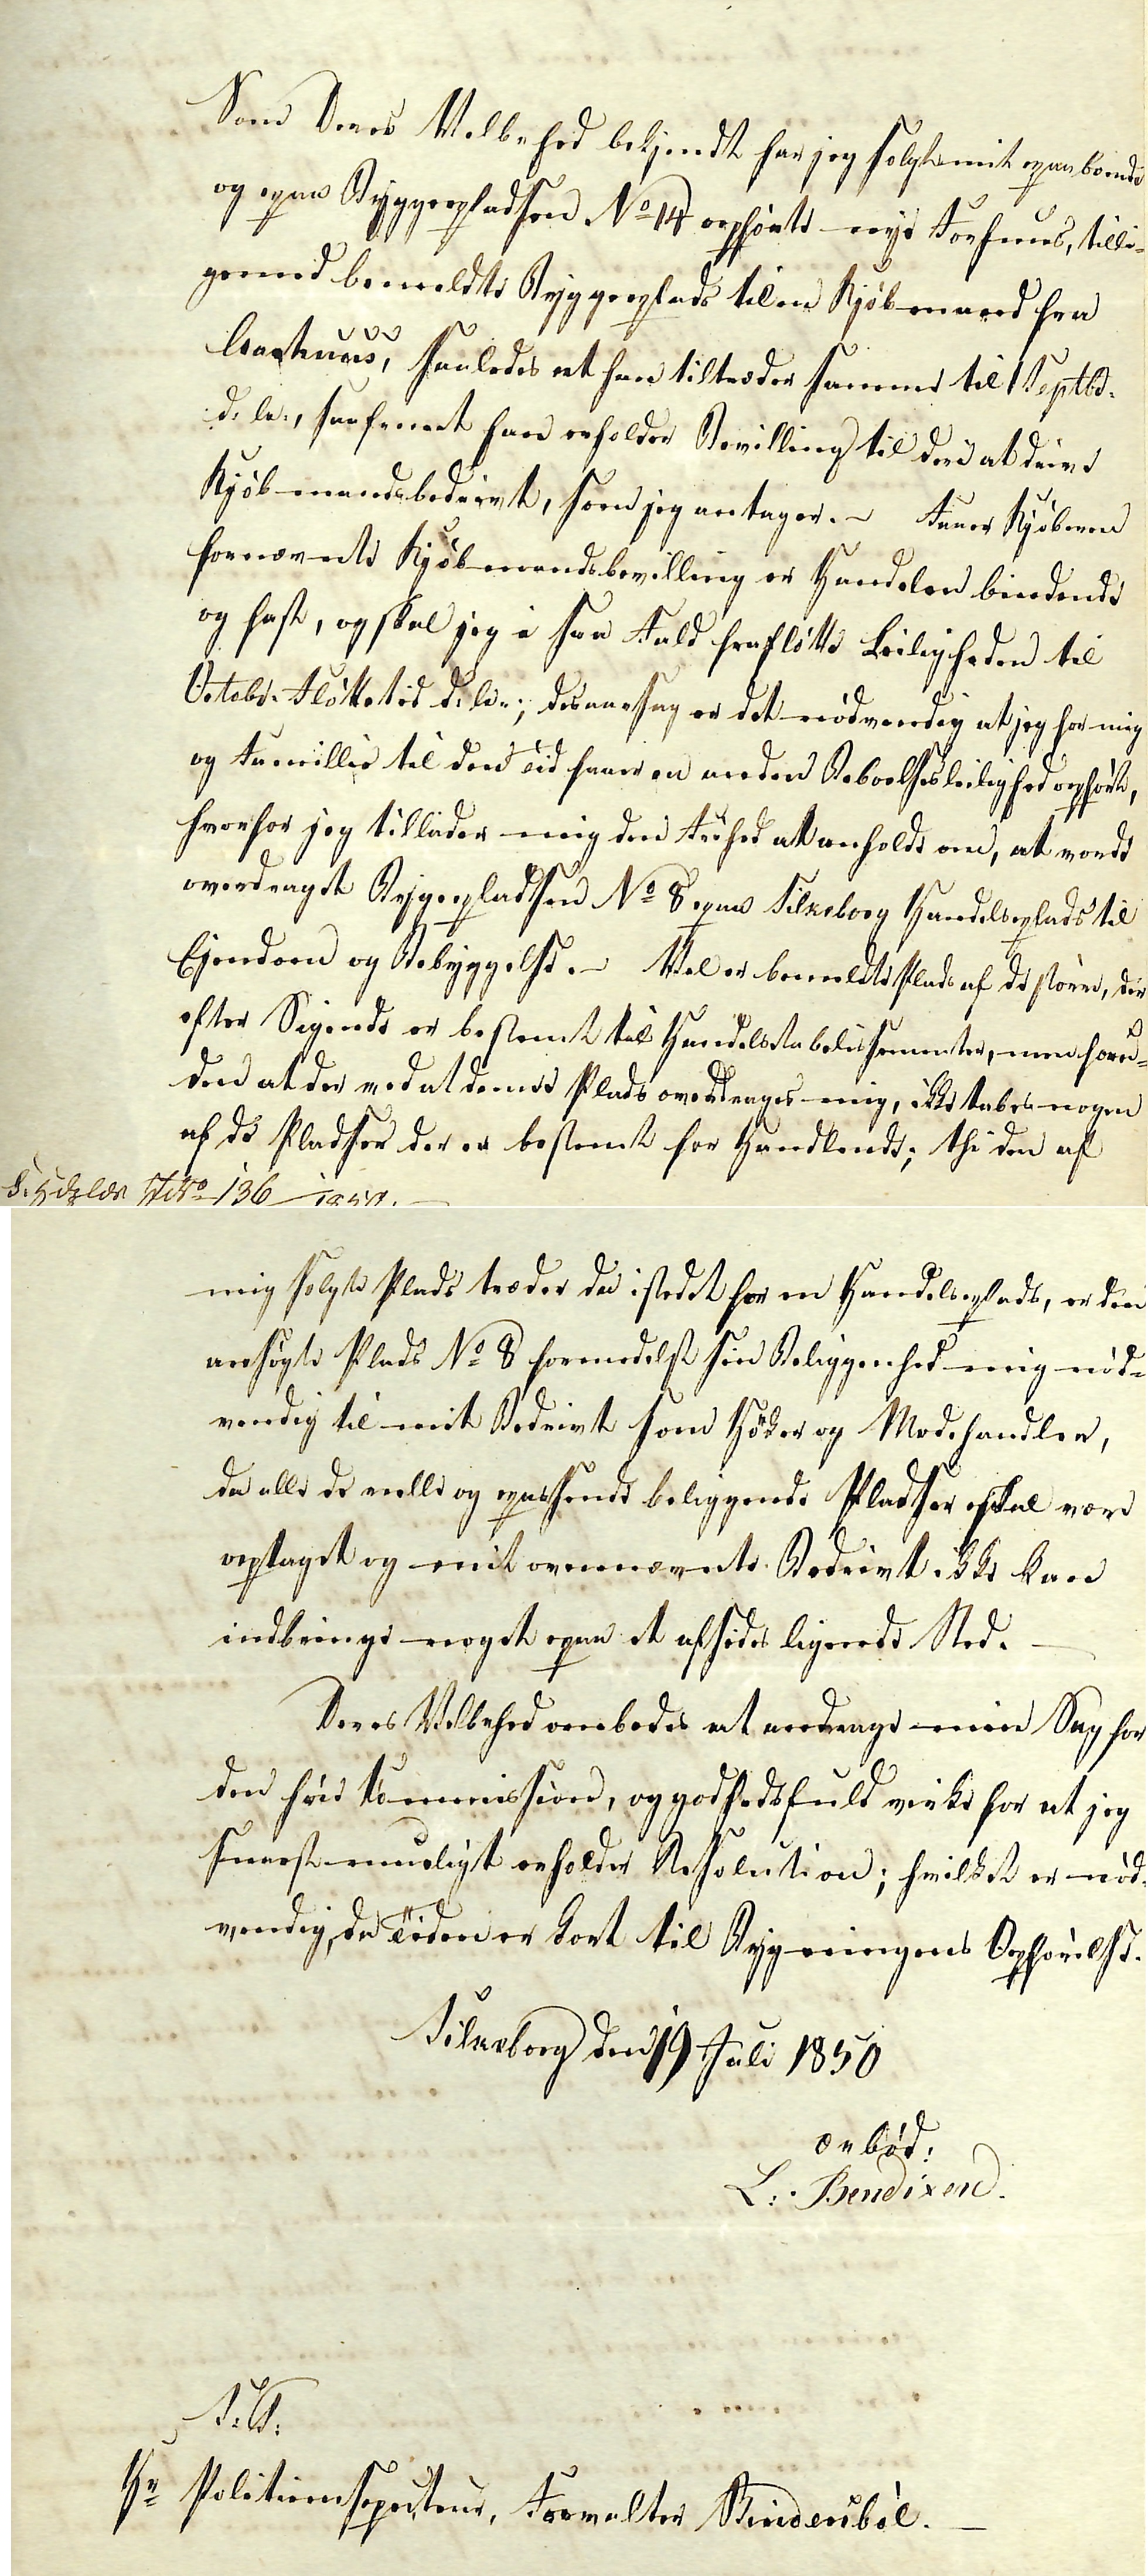 Som Deres Velbhed bekjendt har jeg solgt mit paaboende
og paa Byggepladsen No 14 opførte nye Forhuus, tilli-
gemed bemeldte Byggeplads til en Kjøbmand fra
Aarhuus, saaledes at han tiltræder samme til 1 Septbr.
d. A., saafremt han erholder Bevilling til der at drive
Kjøbmandsbedrivt, som jeg antager. – Faaer Kjøberen
fornævnte Kjøbmandsbevilling er Handelen bindende
og fast, og skal jeg i saa Fald fraflötte Leiligheden til
Octobr. Flöttetid d. A.; desaarsag er det nødvendig at jeg for mig
og Familie til den Tid faaer en anden Beboelsesleilighed opført,
hvorfor jeg tillader mig den Frihed at anholde om, at vorde
overdraget Byggepladsen No 8 paa Silkeborg Handelsplads til
Ejendom og Bebyggelse. – Vel er bemeldte Plads af de større, der
efter Sigende er bestemt til Handelsetablissementer, men foru-
den at der ved at denne Plads overdrages mig, ikke tabes nogen
af de Pladser der er bestemt for Handlende; thi den af
No 136 1850.
mig solgte Plads træder da istedet for en Handelsplads, er den
ansøgte Plads No 8 formedelst sin Beliggenhed mig nød-
vendig til mit Bedrivt som Høker og Modehandler,
da alle de vel og passende beliggende Pladser skal være
optaget og mit ovennævnte Bedrivt ikke kan
indbringe noget paa et afsides liggende Sted.
Deres Velbhed ombedes at andrage min Sag for
den høie Commission, og godhedsfuld virke for at jeg
snarest mueligt erholder Resolution; hvilket er nød-
vendig, da Tiden er kort til Bygningens Opførelse.
Silkeborg den 19 Juli 1850
ærbød:
L. Bendixen.
S. T.
Hr Politiinspecteur, Forvalter Bindesbøl.